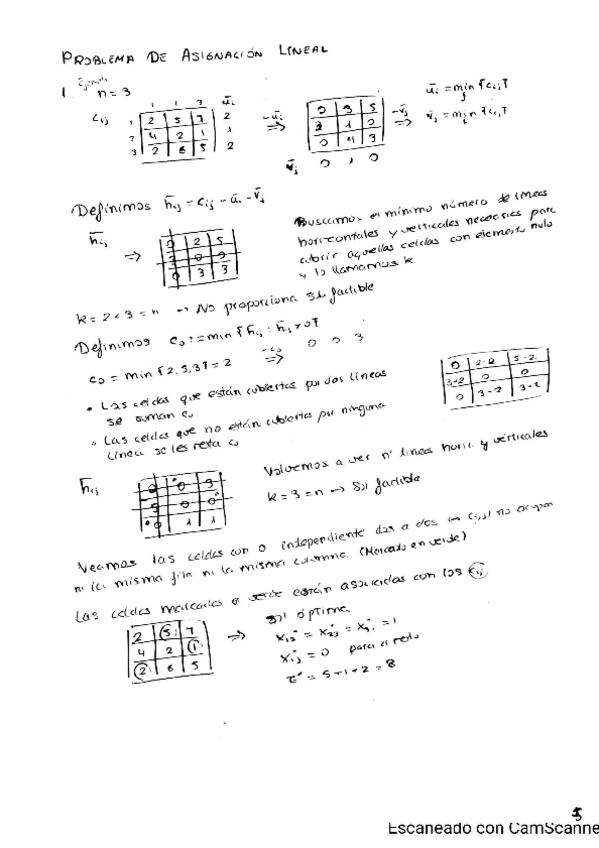 PROBLEMA DE ASIGNACIÓN LINEAL
1. Ejemplo n = 3
1 2 3 ūi
cij 1 2 5 7 2
2 4 2 1 1
3 2 6 5 2
-ūi ⇒
0 3 5
3 1 0
0 4 3
-v̄j ⇒
v̄j 0 1 0
ūi = min {cij}
j
v̄j = min {cij}
i
Definimos h̄ij = cij - ūi - v̄j
h̄ij ⇒
0 2 5
3 0 0
0 3 3
Buscamos el mínimo número de líneas
horizontales y verticales necesarias para
cubrir aquellas celdas con elemento nulo
y lo llamamos k
k = 2 < 3 = n → No proporciona sol factible
Definimos c0 := min {h̄ij : h̄ij > 0}
c0 = min {2, 5, 3} = 2
-c0 ⇒ 0 0 3
• Las celdas que están cubiertas por dos líneas
se suman c0
• Las celdas que no están cubiertas por ninguna
línea se les resta c0
0 2-2 5-2
3-2 0 0
0 3-2 3-2
h̄ij
0 0 3
5 0 0
0 1 1
Volvemos a ver nº líneas horiz. y verticales
k = 3 = n → Sol factible
Veamos las celdas con 0 independiente dos a dos ⇔ cij no ocupan
ni la misma fila ni la misma columna. (Marcado en verde)
Las celdas marcadas en verde están asociadas con los cij
2 5 7
4 2 1
2 6 5
⇒ sol óptima
x12* = x23* = x31* = 1
xij* = 0 para el resto
z* = 5 + 1 + 2 = 8
5
Escaneado con CamScanne